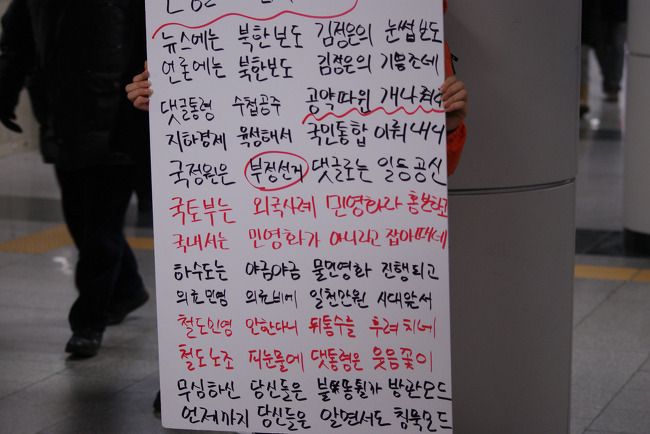 뉴스에는 북한보도 김정은의 눈썹보도
언론에는 북한보도 김정은의 기쁨조네
댓글통령 수첩공주 공약따윈 개나줘
지하경제 육성해서 국민통합 이뤄내니
국정원은 부정선거 댓글로는 일등공신
국토부는 외국사례 민영화라 홍보하고
국내서는 민영화가 아니라고 잡아떼네
하수도는 야금야금 물민영화 진행되고
의료민영 의료비에 일천만원 시대앞서
철도민영 안한다니 뒤통수를 후려치네
철도노조 피눈물에 댓통령은 웃음꽃이
무심하신 당신들은 불똥튈가 방관모드
언제까지 당신들은 알면서도 침묵모드